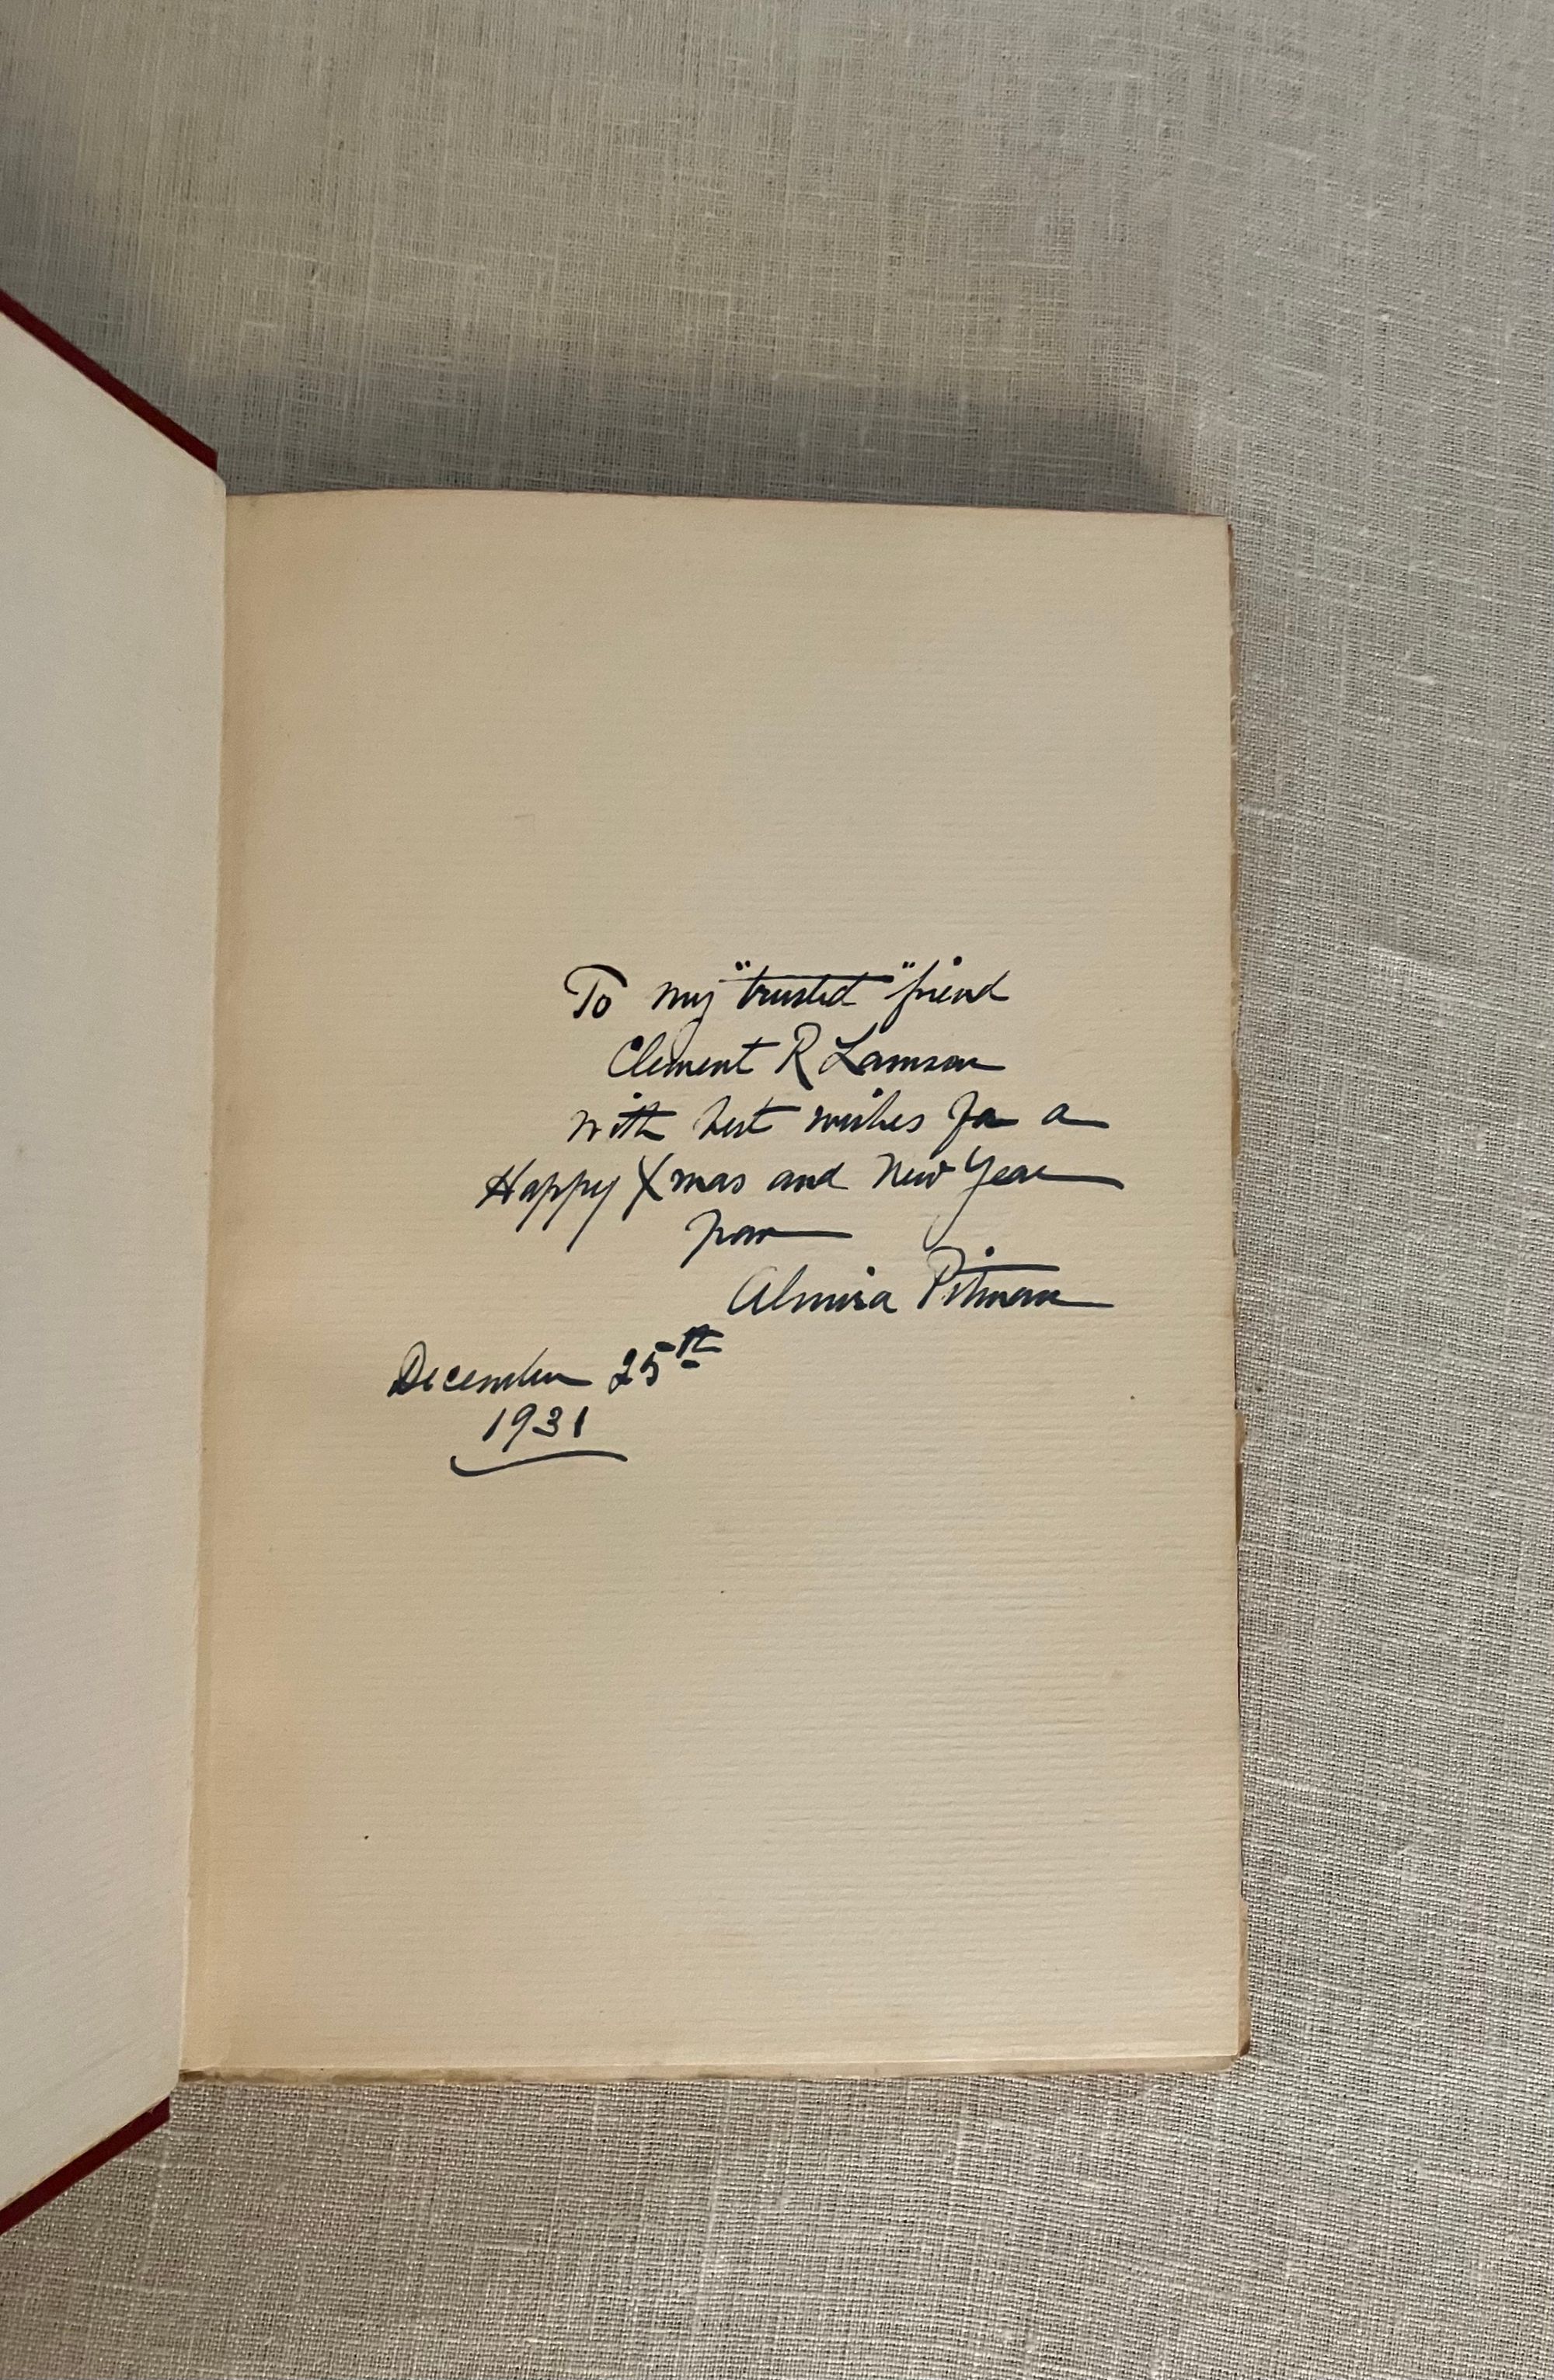 To my "trusted" friend
Clement R Lamson
with best wishes for a
Happy Xmas and New Year
from
Almira Pitman
December 25th
1931